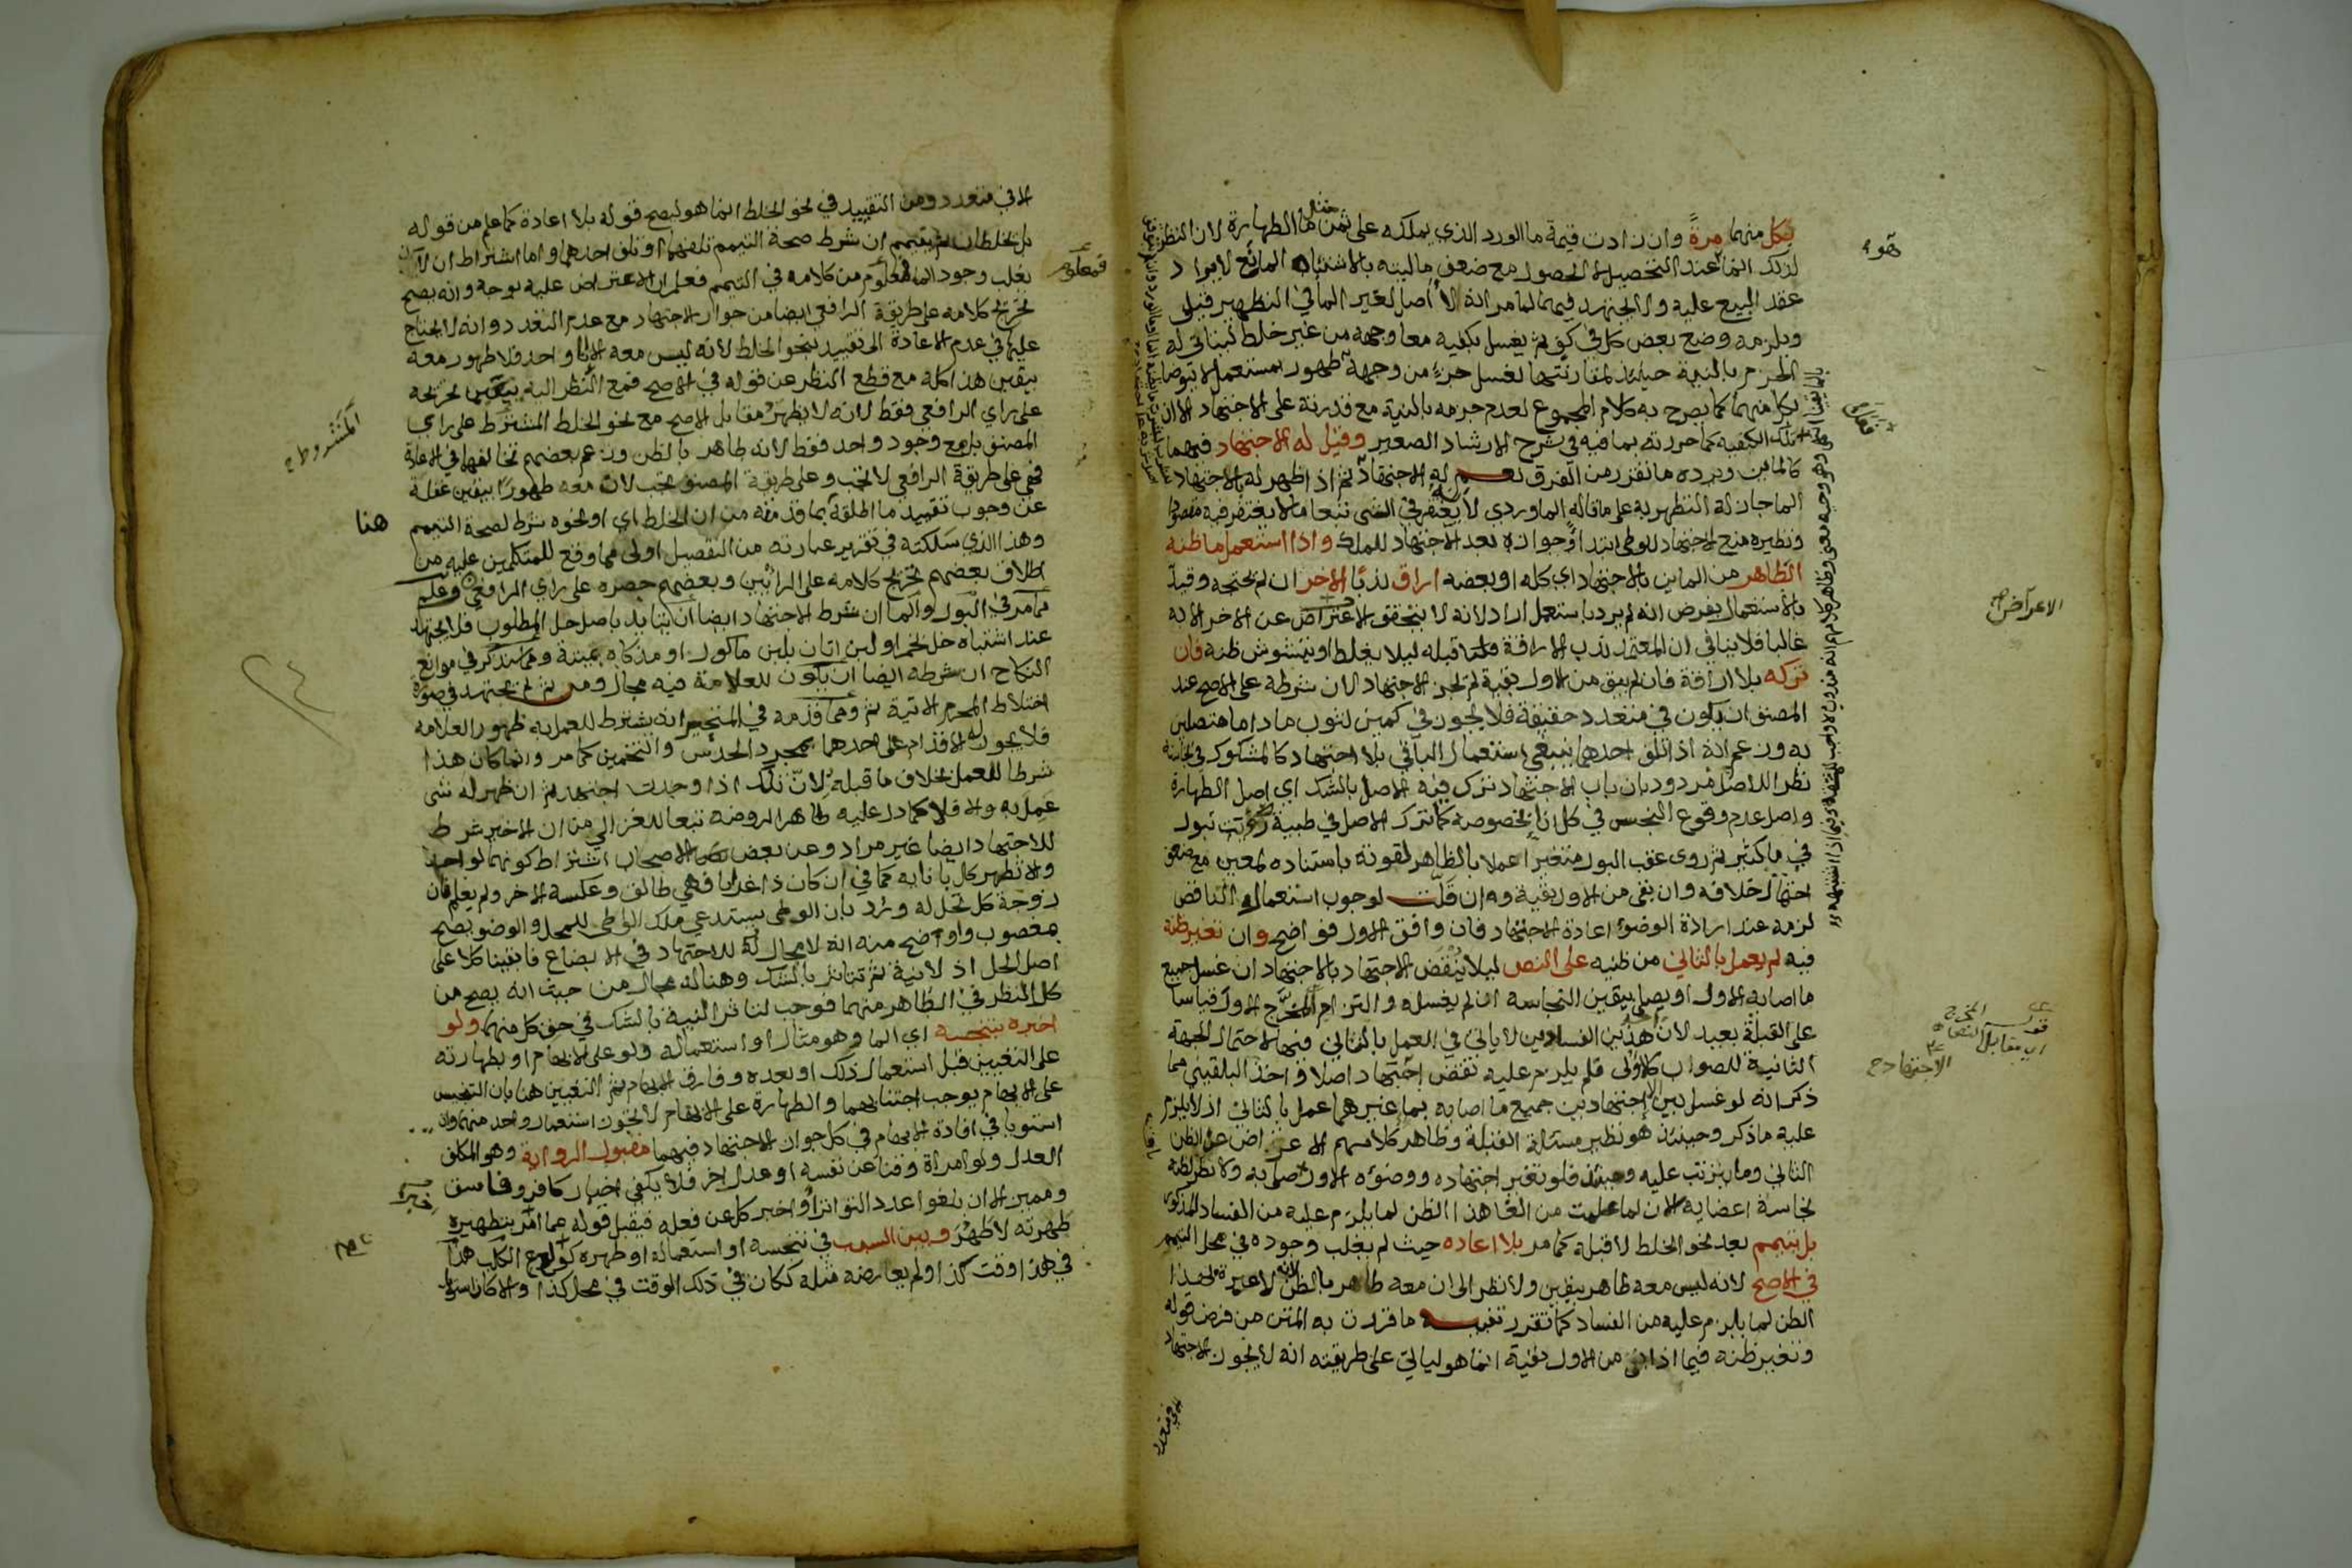 بكل منهما مرة وان زادت قيمة ما الورد الذي يملكه على ثمن مثل ما الطهارة لان النظر
لذلك انما عند التحصيل لا الحصول مع ضعف ماليته بالاشتباه المانع لايراد
عقد البيع عليه ولا يجتهد فيهما لما مر انه لا اصل لغير الما في التطهير قيل
ويلزمه وضع بعض كل في كف ثم يغسل بكفيه معا وجهه من غير خلط ليتاتى له
الجزم بالنية حينئذ لمقارنتها لغسل جزء من وجهه بطهور
بكل منهما كما يصرح به كلام المجموع لعدم جزمه بالنية مع قدرته على الاجتهاد الان
تلك الكيفية كما حررته بما فيه في شرح الارشاد الصغير وقيل له الاجتهاد فيهما
كالماين ويرده ما تقرر من الفرق نعم له الاجتهاد ثم اذا ظهر له بالاجتهاد
الما جاز له التطهر به على ما قاله الماوردي لانه يغتفر في الشي تبعا ما لا يغتفر فيه مقصودا
ونظيره منع الاجتهاد للوطي ابتداء وجوازه بعد الاجتهاد للملك واذا استعمل ما ظنه
الطاهر من الماين بالاجتهاد اي كله او بعضه اراق ندبا الاخر ان لم يحتجه وقيد
بالاستعمال بفرض انه لم يرد باستعمل اراد لانه لا يتحقق الاعراض عن الاخر الا به
غالبا فلا ينافي ان المعتمد ندب الاراقة قبله ليلا يغلط او يتشوش ظنه فان
تركه بلا اراقة فان لم يبق من الاول بقية لم يجز الاجتهاد لان شرطه على الاصح عند
المصنف ان يكون في متعدد حقيقة فلا يجوز في كمين لثوب ما داما متصلين
به وزعم انه اذا تلف احدهما ينبغي استعمال الباقي بلا اجتهاد كالمشكوك في نجاسته
نظرا للاصل مردود بان باب الاجتهاد ترك فيه الاصل بالشك اي اصل الطهارة
واصل عدم وقوع النجس في كل انا بخصوصه كما ترك الاصل في ظبية رؤيت تبول
في ما كثير ثم روى عقب البول متغيرا عملا بالظاهر لقوته باستناده لمعين مع ضعف
احتمال خلافه وان بقي من الاول بقية وان قلت لوجوب استعمال الناقص
لزمه عند ارادة الوضوء اعادة الاجتهاد فان وافق الاول فواضح وان تغير ظنه
فيه لم يعمل بالثاني من ظنيه على النص ليلا ينقض الاجتهاد بالاجتهاد ان غسل جميع
ما اصابه الاول او يصلي بيقين النجاسة ان لم يغسله والتزام المخرج الاول قياسا
على القبلة بعيد لان هذين الفسادين لا ياتى في العمل بالثاني فيها لاحتمال الجهة
الثانية للصواب كالاولى فلم يلزم عليه نقض اجتهاد اصلا واخذ البلقيني مما
ذكر انه لو غسل بين الاجتهادين جميع ما اصابه بما غيرهما عمل بالثاني اذ لا يلزم
عليه ما ذكر وحينئذ هو نظير مسئلة القبلة وظاهر كلامهم الاعراض عن الظن
الثاني وما يترتب عليه وحينئذ فلو تغير اجتهاده ووضوئه الاول صلى به ولا نظر لظنه
نجاسة اعضايه الان لما علمت من الغا هذا الظن لما يلزم عليه من الفساد المذكور
بل يتيمم بعد نحو الخلط لا قبله كما مر بلا اعاده حيث لم يغلب وجوده في محل التيمم
في الاصح لانه ليس معه طاهر بيقين ولا نظر الى ان معه طاهر بالظن لانه لا عبرة بهذا
الظن لما يلزم عليه من الفساد كما تقرر تنبيه ما قررت به المتن من فرض قوله
وتغير ظنه فيما اذا بقي من الاول بقية انما هو لياتي على طريقته انه لا يجوز الاجتهاد
الا في متعدد ومن التقييد في نحو الخلط انما هو ليصح قوله بلا اعادة كما علم من قوله
بل يخلطان ثم يتيمم ان شرط صحة التيمم تلفهما او تلف احدهما واما اشتراط ان لا
يغلب وجود الما فمعلوم من كلامه في التيمم فعلم ان الاعتراض عليه بوجه وانه يصح
تخريج كلامه على طريقة الرافعي ايضا من جواز الاجتهاد مع عدم التعدد وانه لا يحتاج
عليها في عدم الاعادة الى تقييد بنحو الخلط لانه ليس معه الا انا واحد فلا طهور معه
بيقين هذا كله مع قطع النظر عن قوله في الاصح فمع النظر اليه يتعين تخريجه
على راي الرافعي فقط لانه لا يظهر مقابل الاصح مع نحو الخلط المشترط على راي
المصنف بل مع وجود واحد فقط لانه طاهر بالظن وزعم بعضهم تخالفهما في الاعادة
ففي على طريقة الرافعي لا تجب وعلى طريقة المصنف تجب لان معه طهورا بيقين غفلة
عن وجوب تقييد ما اطلقه بما قدمه من ان الخلط اي او نحوه شرط لصحة التيمم هنا
وهذا الذي سلكته في تقرير عبارته من التفصيل اولى مما وقع للمتكلمين عليه من
اطلاق بعضهم تخريج كلامه على الرائين وبعضهم حصره على راي الرافعي وعلم
مما مر في البول والما ان شرط الاجتهاد ايضا ان يتايد باصل حل المطلوب فلا يجتهد
عند اشتباه خل بخمر او لبن اتان بلبن ماكول او مذكاة بميتة ومما سيذكر في موانع
النكاح ان شرطه ايضا ان يكون للعلامة فيه مجال ومن ثم لم يجتهد في صورة
اختلاط المحرم الاتية ثم ومما قدمه في المتحير انه يشترط للعمل به ظهور العلامه
فلا يجوز له الاقدام على احدهما بمجرد الحدس والتخمين كما مر وانما كان هذا
شرطا للعمل بخلاف ما قبله لان تلك اذا وجدت اجتهد ثم ان ظهر له شي
عمل به والا فلا كما دل عليه ظاهر الروضة تبعا للغزالي من ان الاخير شرط
للاجتهاد ايضا غير مراد وعن بعض الاصحاب اشتراط كونهما لواحد
والا تطهر كل بانايه كما في ان كان ذا غرابا فهي طالق وعكسه الاخر ولم يعلم فان
زوجة كل تحل له ورد بان الوطي يستدعي ملك الواطي للمحل والوضو يصح
بمغصوب واوضح منه انه لا مجال له للاجتهاد في الابضاع فابقينا كلا على
اصل الحل اذ لا نية ثم تتاثر بالشك وهنا له مجال من حيث انه يصح من
كل النظر في الطاهر منهما فوجب لتاثر النية بالشك في حق كل منهما ولو
اخبره بتنجسه اي الما وهو مثال او استعماله ولو على الابهام او بطهارته
على التعيين قبل استعمال ذلك او بعده وفارق الابهام ثم التعيين هنا بان التنجيس
على الابهام يوجب اجتنابهما والطهارة على الابهام لا تجوز استعمال واحد منهما وان
استويا في افادة الابهام في كل جواز الاجتهاد فيهما مقبول الرواية وهو المكلف
العدل ولو امراة وقنا عن نفسه او عدل اخر فلا يكفي اخبار كافر وفاسق
ومميز الا ان بلغوا عدد التواتر او اخبر كل عن فعله فيقبل قوله عما امر بتطهيره
طهرته لا طهر وبين السبب في تنجسه او استعماله او طهره كولغ الكلب هذا
في هذا وقت كذا ولم يعارضه مثله ككان في ذلك الوقت في محل كذا والا كان استويا
الاعراض
الاجتهاد
المشروط
فمعلوم